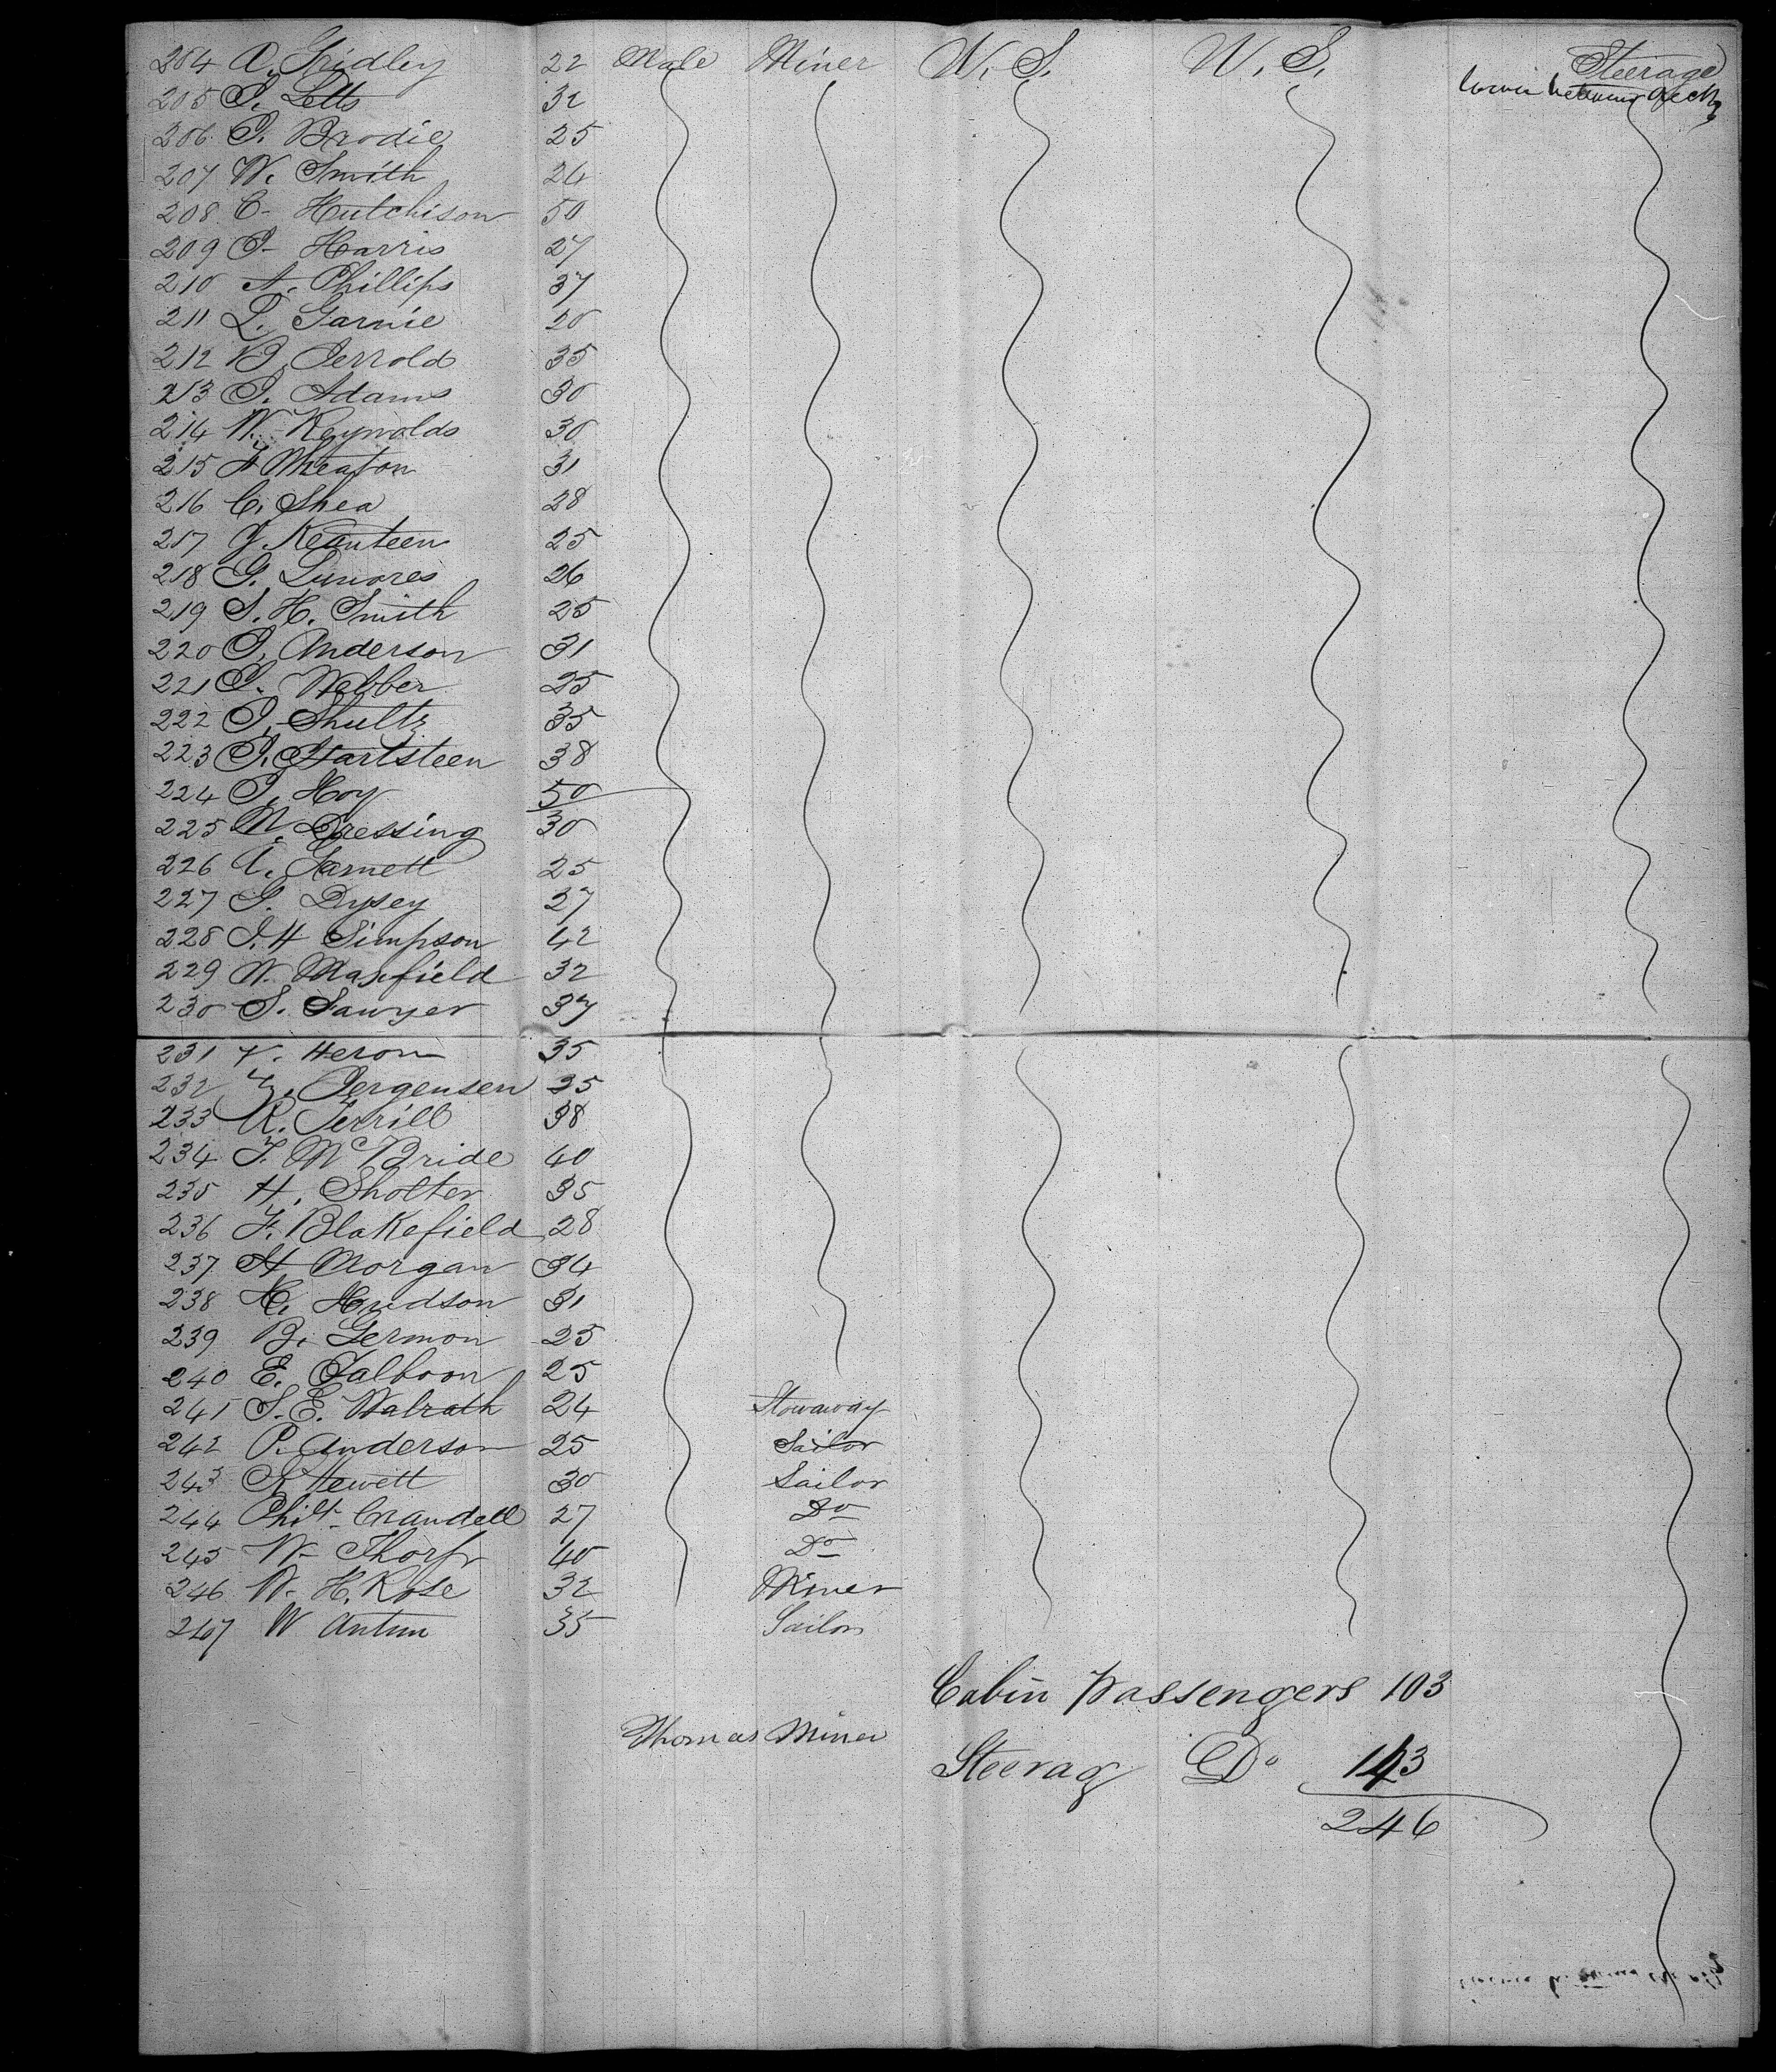 204 A. Gridley 22 Male Miner U. S. U. S. Steerage
205 J. Letts 32 between decks
206 J. Brodie 25
207 W. Smith 24
208 C. Hutchison 50
209 J. Harris 27
210 A. Phillips 37
211 L. Garnie 20
212 B. Jerrold 35
213 J. Adams 30
214 W. Reynolds 30
215 F Wheaton 31
216 C. Shea 28
217 J. Keanteen 25
218 G. Lunores 26
219 S. H. Smith 25
220 J. Anderson 31
221 J. Webber 25
222 J. Shultz 35
223 J. Hartsteen 38
224 J. Hoy 50
225 M. Dressing 30
226 A. Garnett 25
227 S. Dysey 27
228 J. H Simpson 42
229 W. Maxfield 32
230 S. Sawyer 37
231 V. Heron 35
232 Z. Jergensen 25
233 R. Terrill 38
234 T. McBride 40
235 H. Sholter 35
236 F. Blakefield 28
237 H Morgan 34
238 H. Hudson 31
239 B. Germon 25
240 E. Talboon 25
241 S. E. Walrath 24 Stowaway
242 P. Anderson 25 Sailor
243 R Hewett 30 Sailor
244 Phil. Crandell 27 Do
245 W. Thorp 40 Do
246 W. H. Rose 32 Miner
247 W Antum 35 Sailor
Cabin Passengers 103
Thomas Miner
Steerag Do 143
246